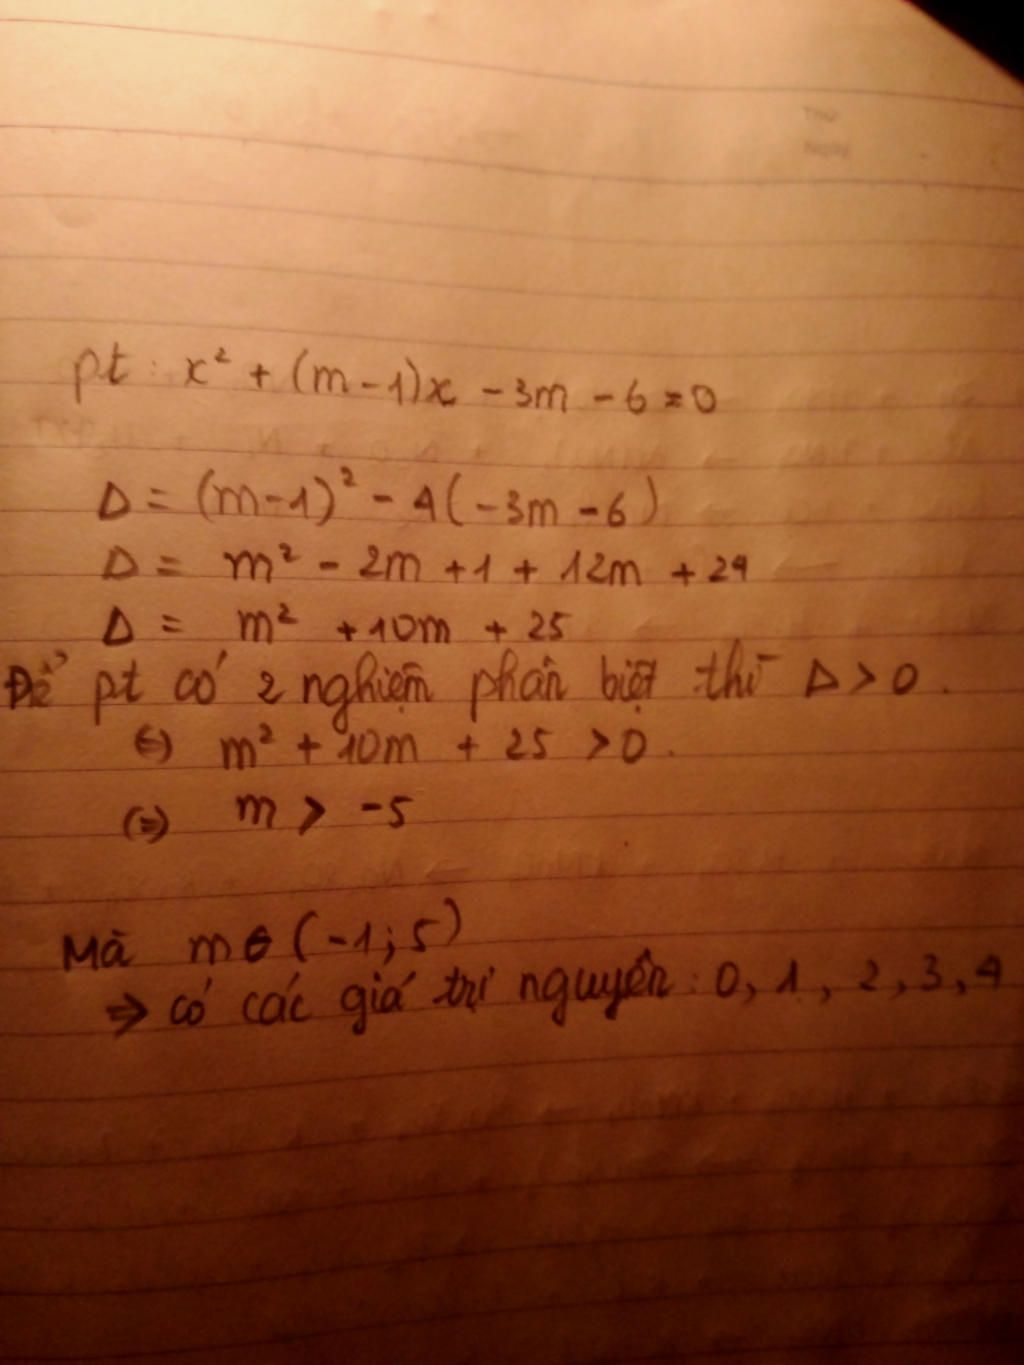 Thứ
Ngày
pt: x² + (m - 1)x - 3m - 6 = 0
Δ = (m-1)² - 4(-3m - 6)
Δ = m² - 2m + 1 + 12m + 24
Δ = m² + 10m + 25
Để pt có 2 nghiệm phân biệt thì Δ > 0.
(=) m² + 10m + 25 > 0.
(=) m > -5
Mà m ∈ (-1; 5)
=> có các giá trị nguyên: 0, 1, 2, 3, 4